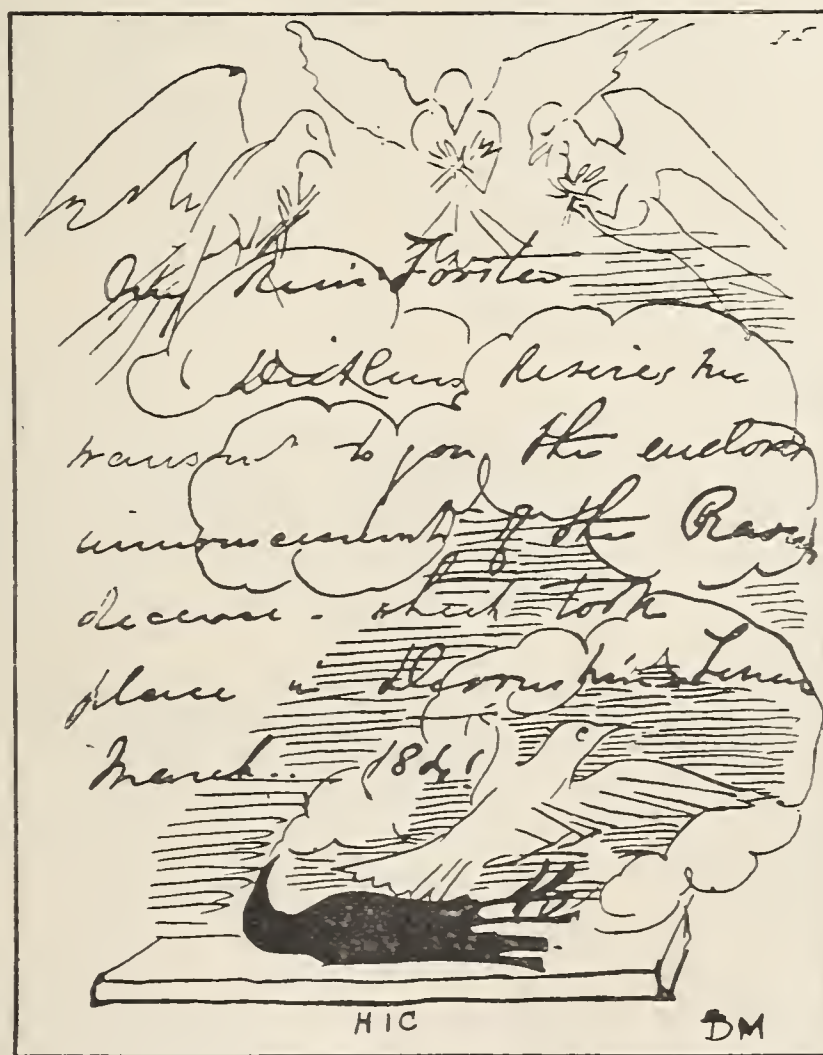 My dear Forster
Dickens desires me
transmit to you this enclosed
announcement of the Raven's
decease - which took
place in Devonshire Terrace
March.. 1841
HIC
DM